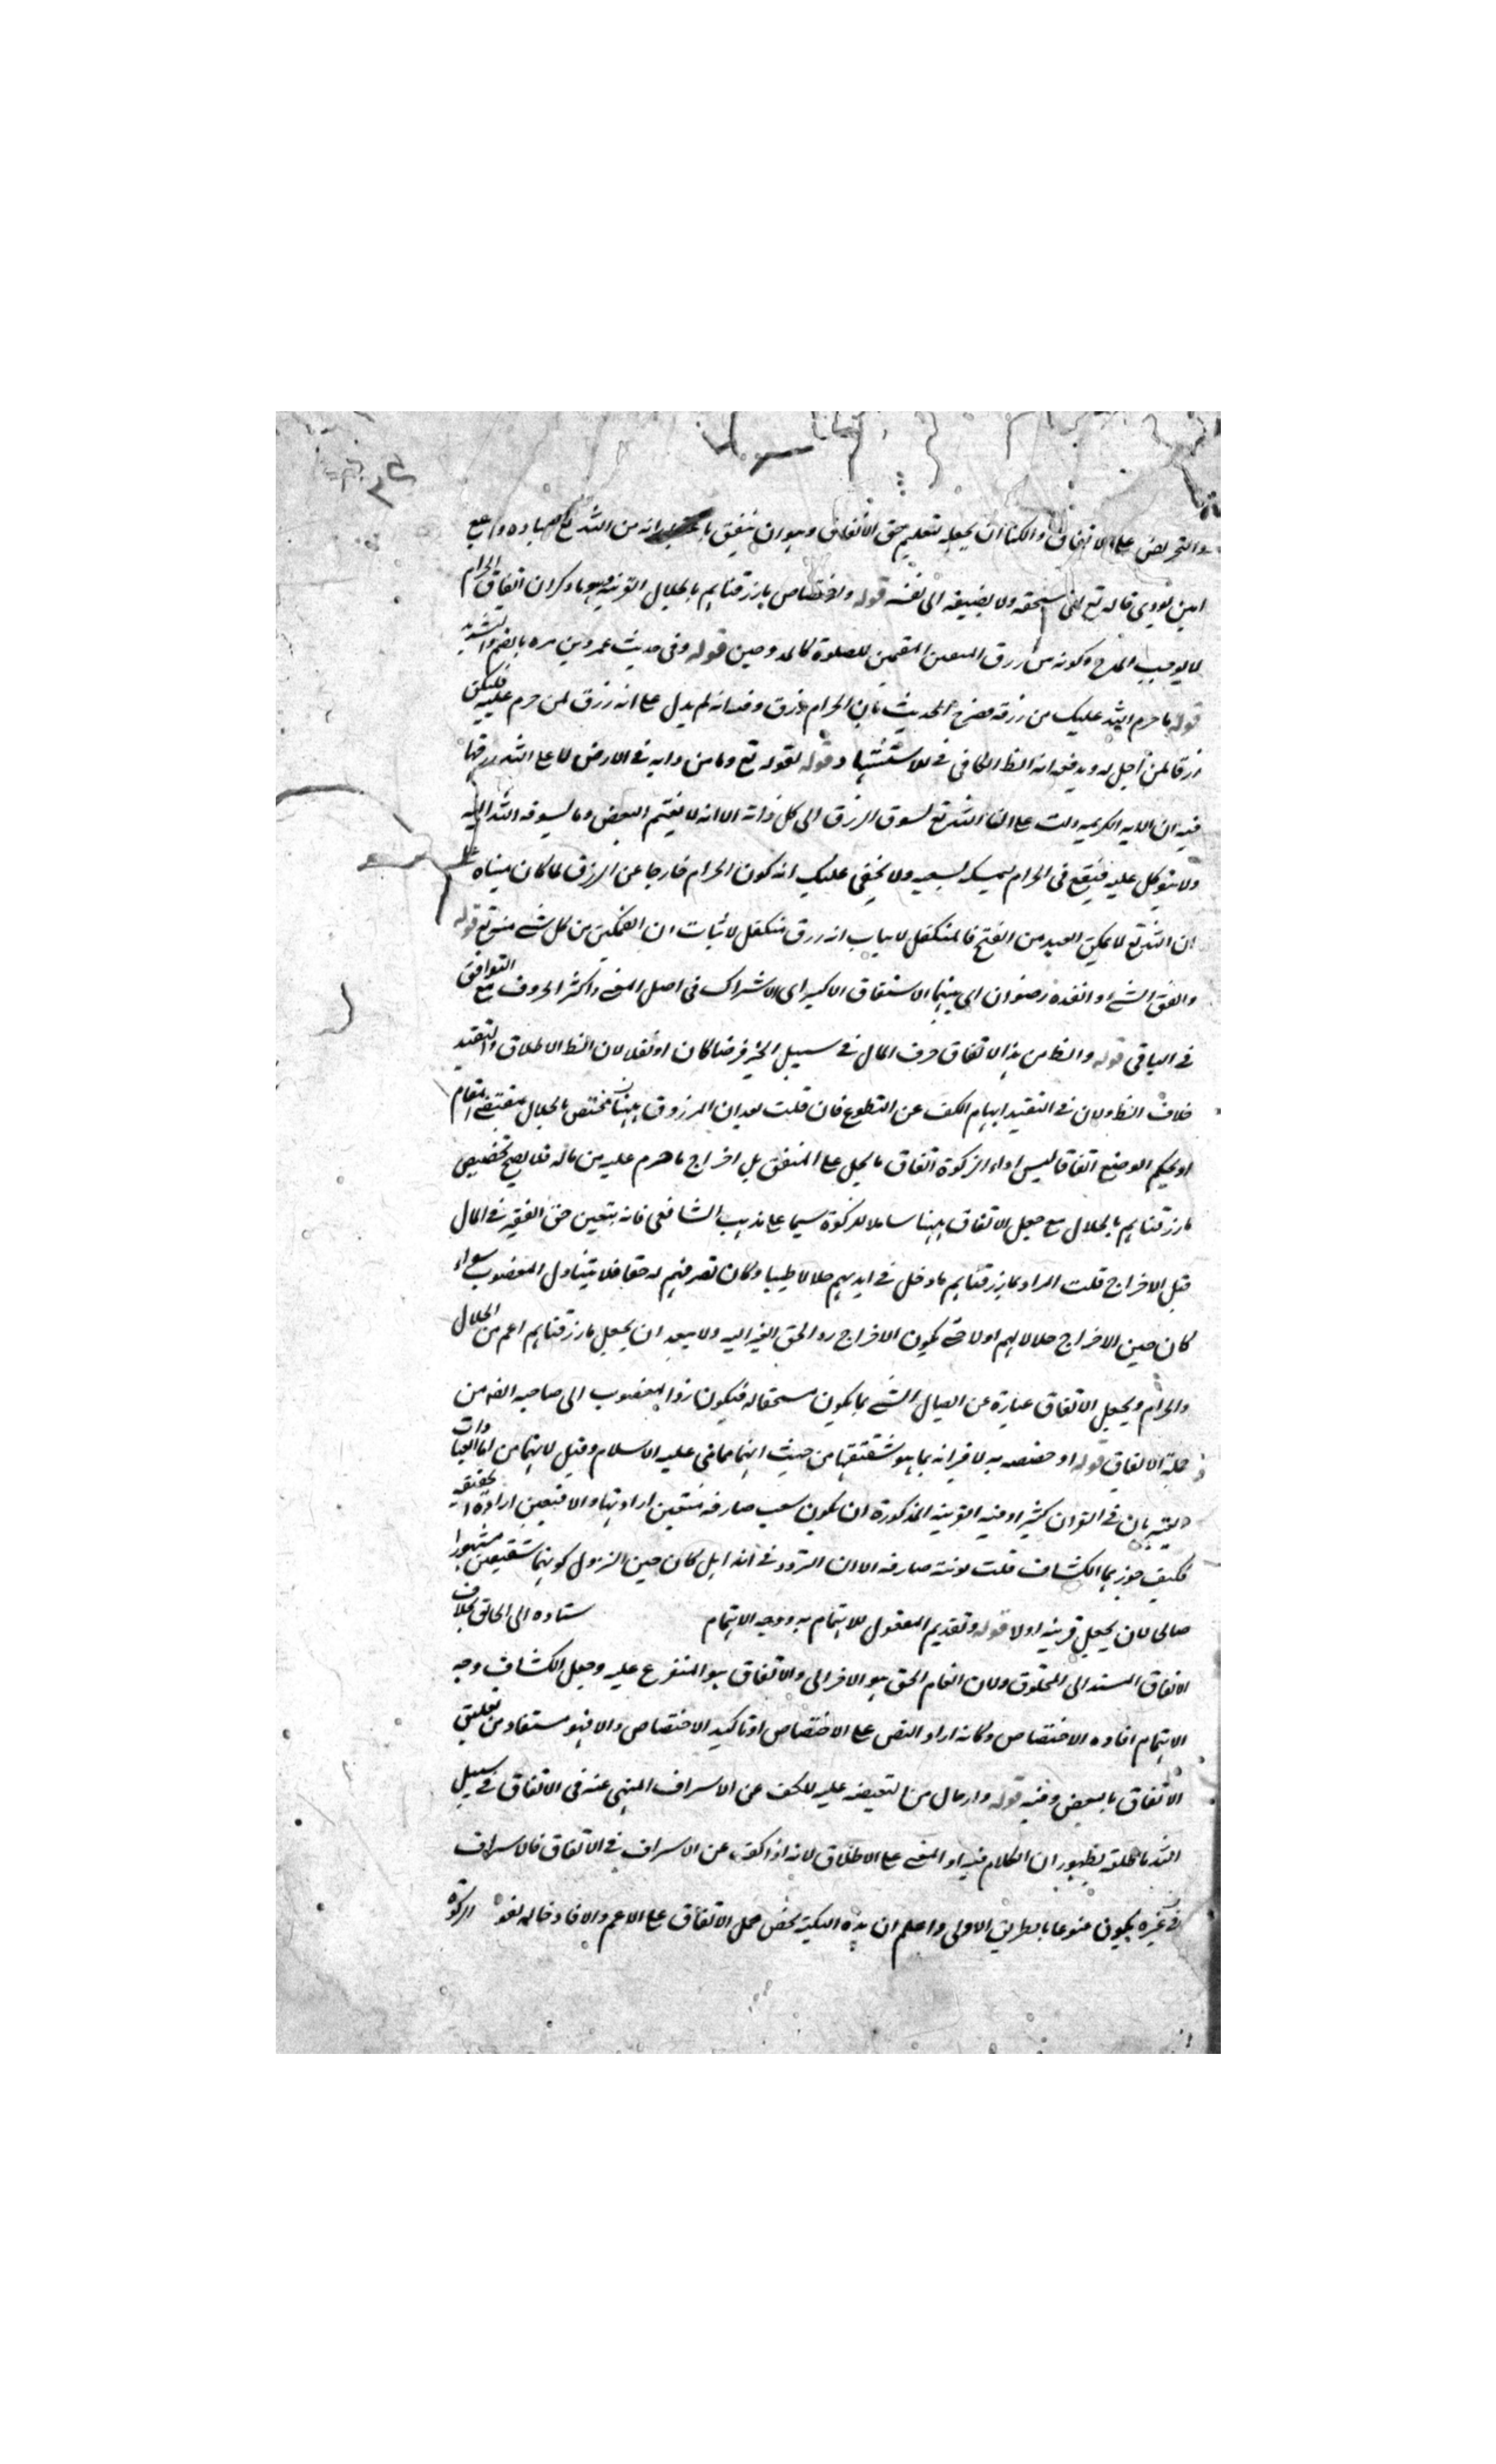 والتحريض على الانفاق والكنا ان يجعله لتعليم حق الانفاق وهو ان ينفق بانه من الله تع لعباده واجع
امين يؤدى ماله تع الى مستحقه ولا يضيفه الى نفسه قوله واختصاص ما رزقناهم بالحلال القرينة وهو ما ذكر ان انفاق الحرام
لا يوجب المدح وكونه من رزق المقيمين للصلوة كالممدوحين قوله وفى حديث عمرو بن مره بالضم والتشديد
قوله ما حرم الله عليك من رزقه صرح الحديث بان الحرام رزق وفيه انه لم يدل على انه رزق لمن حرم عليه فليكن
رزقا لمن احل له ويدفعه انه الظ الكافى فى للاستشهاد وقوله لقوله تع وما من دابه فى الارض الا على الله رزقها
فيه ان الايه الكريمه دلت على ان الله تع يسوق الرزق الى كل دابة الا انه لا يغتم البعض وما يسوقه الله اليه
ولا يتوكل عليه فيقع فى الحرام بسعيه ولا يخفى عليك انه كون الحرام خارجا عن الرزق لما كان مبناه على
ان الله تع لا يمكن العبد من القبح فالمتكفل لاثبات ان التمكين من كل شئ من تع قوله
وانفق الشئ وانفده اخوان اى بينهما الاشتقاق الاكبر اى الاشتراك فى اصل المعنى واكثر الحروف مع التوافق
فى الباقى قوله والظ من هذا الانفاق صرف المال فى سبيل الخير فرضا كان او نفلا لان الظ الاطلاق والتقييد
خلاف الظ ولان فى التقييد ايهام الكف عن التطوع فان قلت بعد ان المرزوق ههنا مختص بالحلال بمقتضى المقام
او بحكم الوضع اتفاقا ليس اداء الزكوة انفاق ما يحل على المنفق بل اخراج ما حرم عليه من ماله فلا يصح تخصيص
ما رزقناهم بالحلال مع جعل الانفاق ههنا شاملا للزكوة سيما على مذهب الشافعى فانه يتعين حق الفقير فى المال
قبل الاخراج قلت المراد بما رزقناهم ما دخل فى ايديهم حلالا طيبا وكان تصرفهم له حقا فلا يتناول المغصوب سواء
كان حين الاخراج حلالا لهم اولا حتى يكون الاخراج رد الحق الغير اليه ولا يبعد ان يجعل ما رزقناهم اعم من الحلال
والحرام ويجعل الانفاق عبارة عن ايصال الشئ بما يكون مستحقا له فيكون رد المغصوب الى صاحبه ايضا من
جملة الانفاق قوله او خصصه به لاقترانه بما هو شقيقها من حيث انهما مما بنى عليه الاسلام وقيل لانهما من امهات العبادات
فى القران كثيرا وفيه القرينة المذكورة ان يكون سبب صارفه فتعين ارادتها والا فتعين اراده الحقيقه
فكيف جوزهما الكشاف قلت قرينة صارفه الا ان التردد فى انه هل كان حين النزول كونهما شقيقين مشهورا
صالحا لان يجعل قرينة اولا قوله وتقديم المفعول للاهتمام به ووجه الاهتمام ستاده الى الخالق بخلاف
الانفاق المسند الى المخلوق ولان انعام الحق هو والانفاق هو المتفرع عليه وجعل الكشاف وجه
الاهتمام افاده الاختصاص وكانه اراد النص على الاختصاص او تاكيد الاختصاص والا فهو مستفاد من تعليق
الانفاق بالبعض وفيه قوله وادخال من التبعيضه عليه للكف عن الاسراف المنهى عنه فى الانفاق فى سبيل
الله ما اطلقه لظهور ان الكلام فيه او المعنى على الاطلاق لانه اذا كف عن الاسراف فى الانفاق فالاسراف
فى غيره يكون ممنوعا بالطريق الاولى واعلم ان هذه النكتة بحمل الانفاق على الاعم والا فادخاله لغو الزكوة